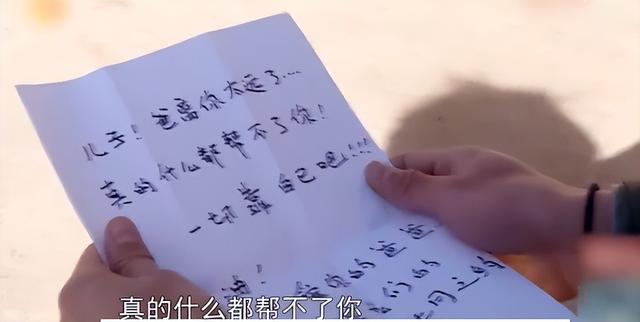 儿子！爸离你太远了……
真的什么都帮不了你！
一切靠自己吧！！！！
你的爸爸
们的
真的什么都帮不了你